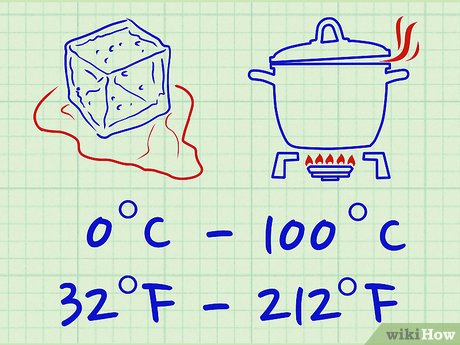 0°C - 100°C
32°F - 212°F
wikiHow